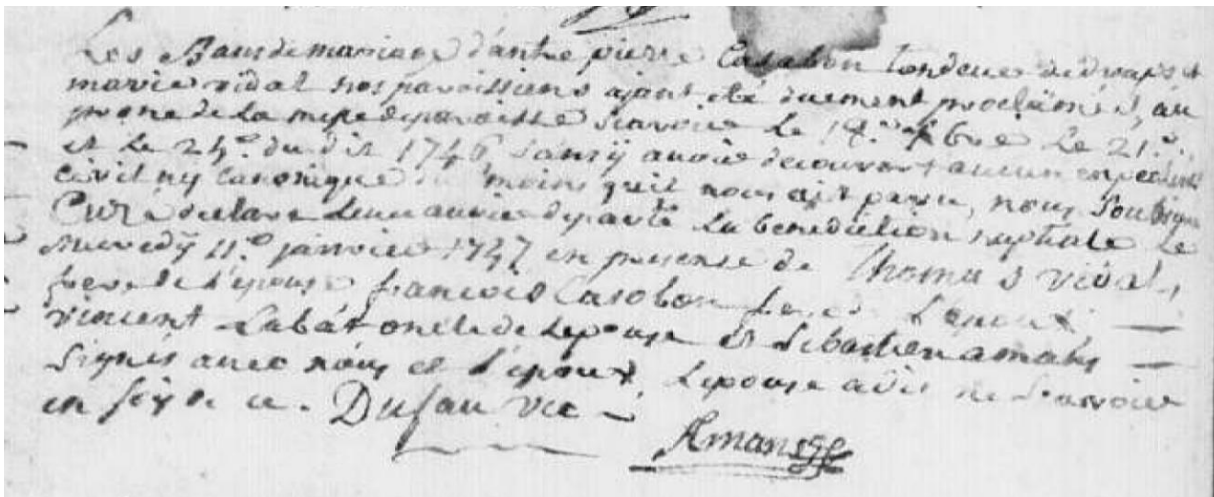 Les Bans de mariage d'antre pierre Casabon tondeur de draps et
marie vidal nos paroissiens ajant eté duement proclamés, au
prone de la messe de paroisse scavoir le 18.e Xbre le 21.e
et le 25.e du dit 1746 sans ÿ avoir decouvert aucun enpechement
civil ny canonique du moins qu'il nous ait paru, nous Soubsigné
Curé declare leur avoir departi la benediction nuptiale le
mercredÿ 11.e janvier 1747 en presence de Thomas vidal,
frere de l'epouse françois Casabon frere de l'epoux
vincent Labat oncle de l'epouse et Sebastien amans
signés avec nous et l'epoux, l'epouse a dit ne scavoir
en foy de ce. Dufau vic
Amans